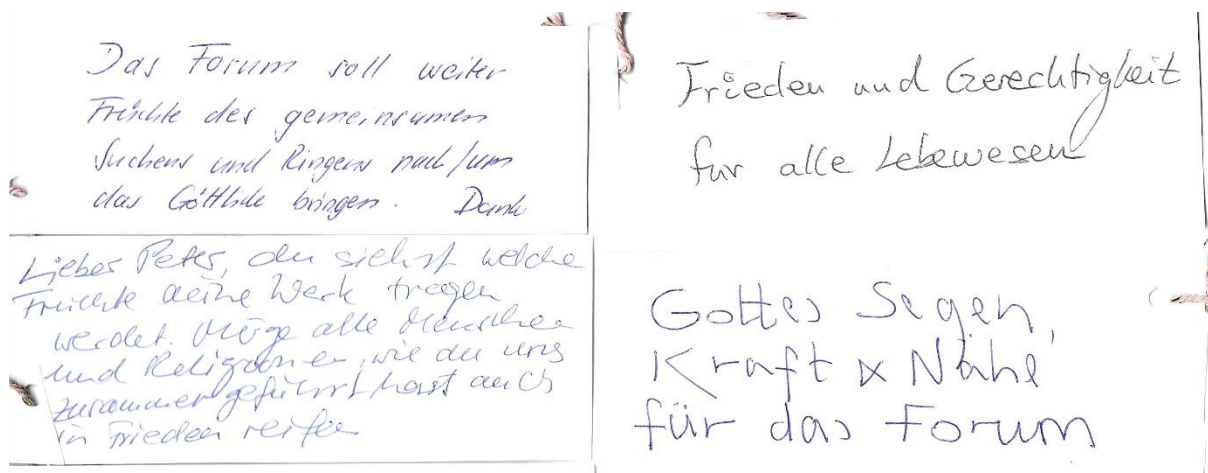 Das Forum soll weiter
Früchte des gemeinsamen
Suchens und Ringens nach/um
das Göttliche bringen. Dank
Frieden und Gerechtigkeit
für alle Lebewesen
Lieber Peter, du siehst welche
Früchte deine Werk tragen
werdet. Möge alle Menschen
und Religionen, wie du uns
zusammengeführt hast auch
in Frieden reifen
Gottes Segen,
Kraft & Nähe
für das Forum